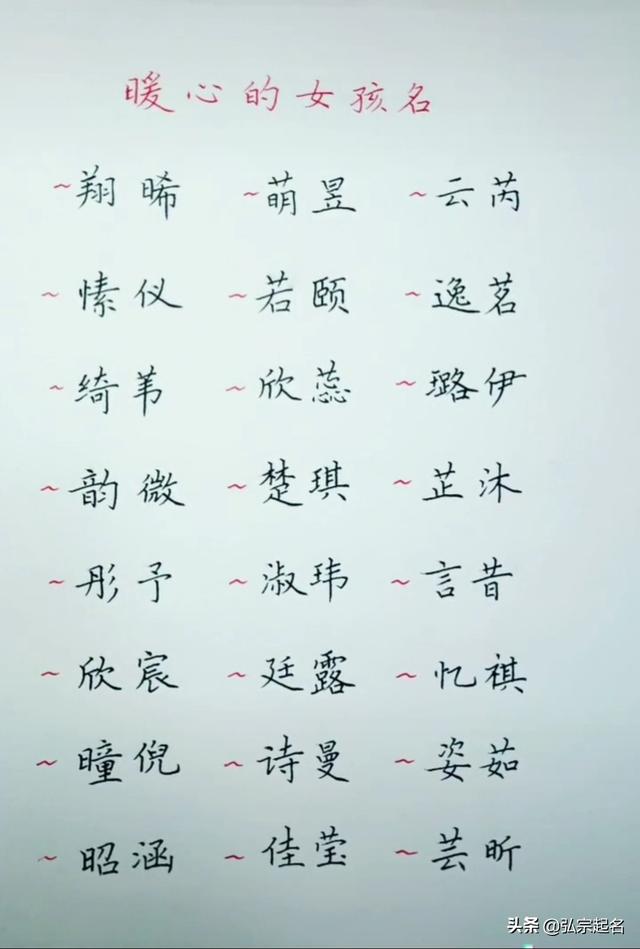 暖心的女孩名
~翔晞 ~萌昱 ~云芮
~愫仪 ~若颐 ~逸茗
~绮苇 ~欣蕊 ~璐伊
~韵微 ~楚琪 ~芷沐
~彤予 ~淑玮 ~言昔
~欣宸 ~廷露 ~忆祺
~曈倪 ~诗曼 ~姿茹
~昭涵 ~佳莹 ~芸昕
头条 @弘宗起名